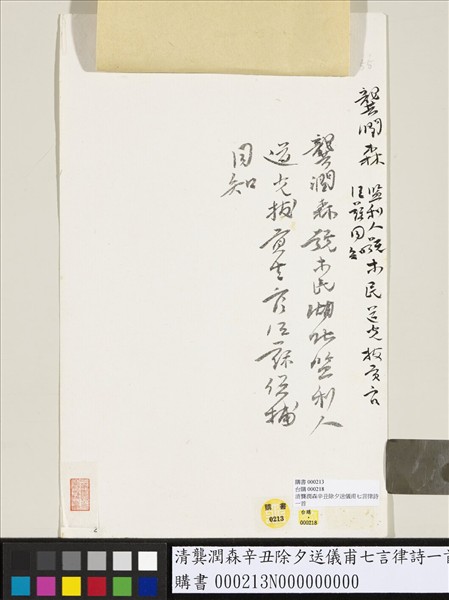 龔潤森
監利人號木民道光拔貢官
江蘇同知
龔潤森號木民湖北監利人
道光拔貢生官江蘇候補
同知
購書 000213
台購 000218
清龔潤森辛丑除夕送儀甫七言律詩
一首
購書
0213
台購
000218
清龔潤森辛丑除夕送儀甫七言律詩一首
購書 000213N000000000